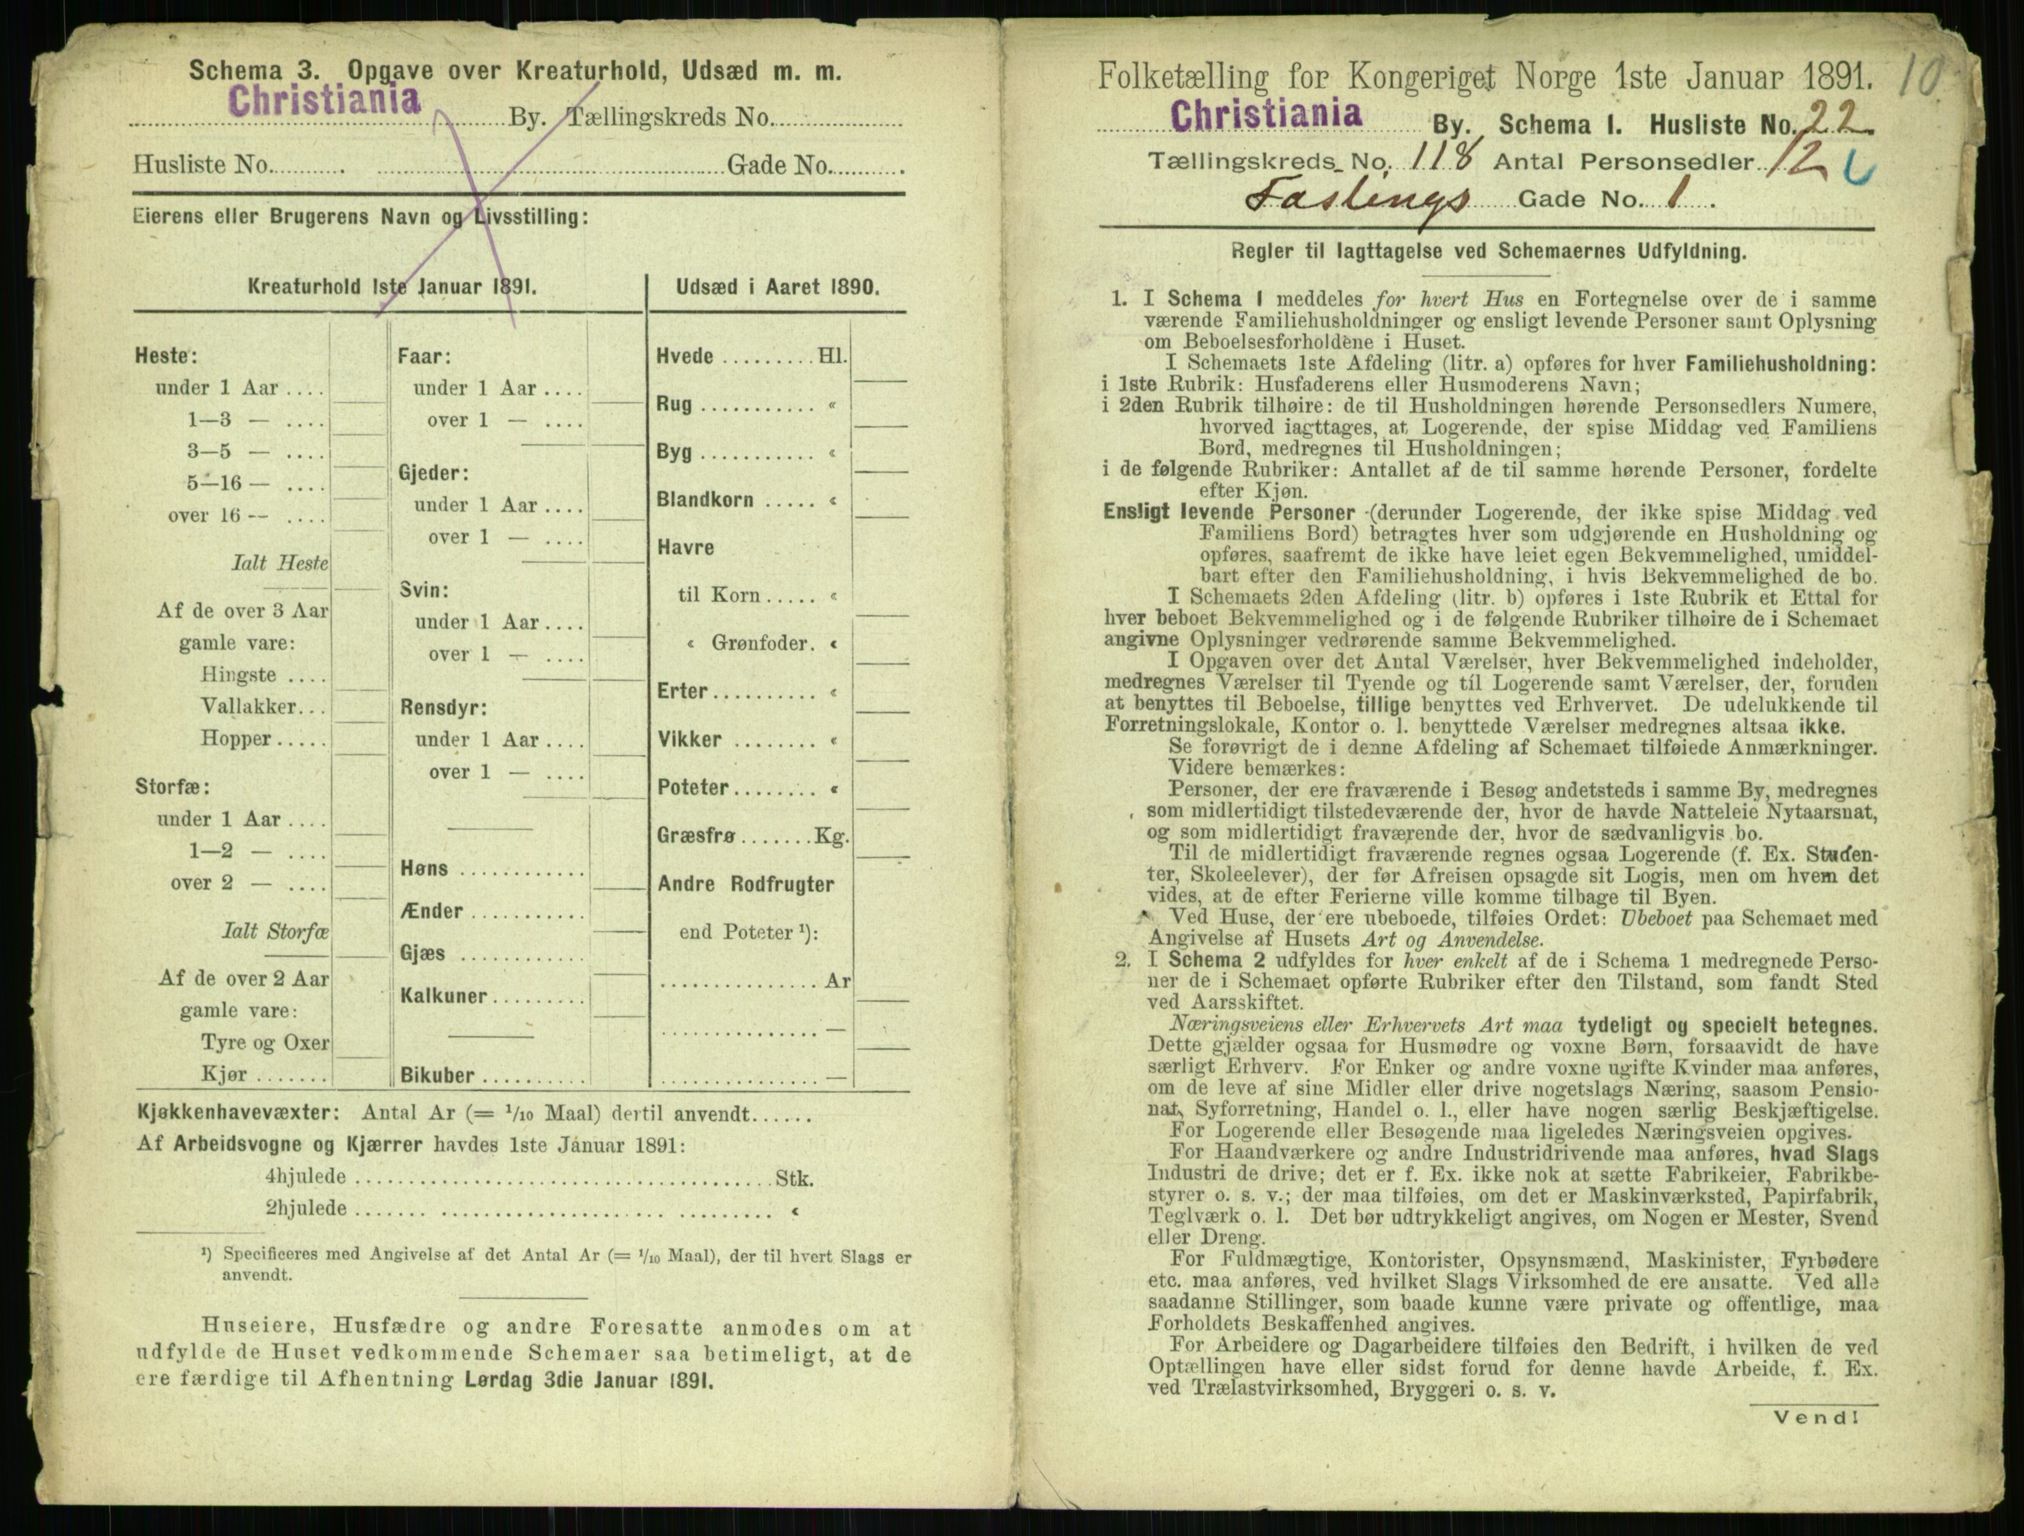 Schema 3. Opgave over Kreaturhold, Udsæd m. m.
Christiania By. Tællingskreds No.
Husliste No. Gade No.
Eierens eller Brugerens Navn og Livsstilling:
Kreaturhold 1ste Januar 1891.
Heste:
under 1 Aar ....
1—3 — ....
3—5 — ....
5—16 — ....
over 16 — ....
Ialt Heste
Af de over 3 Aar
gamle vare:
Hingste ....
Vallakker...
Hopper.....
Storfæ:
under 1 Aar ....
1—2 — ....
over 2 — ....
Ialt Storfæ
Af de over 2 Aar
gamle vare:
Tyre og Oxer
Kjør.......
Faar:
under 1 Aar ....
over 1 — ....
Gjeder:
under 1 Aar ....
over 1 — ....
Svin:
under 1 Aar ....
over 1 — ....
Rensdyr:
under 1 Aar ....
over 1 — ....
Høns ............
Ænder ...........
Gjæs ............
Kalkuner.........
Bikuber..........
Udsæd i Aaret 1890.
Hvede .........Hl.
Rug ........... «
Byg ........... «
Blandkorn ..... «
Havre
til Korn..... «
« Grønfoder. «
Erter.......... «
Vikker ........ «
Poteter........ «
Græsfrø.......Kg.
Andre Rodfrugter
end Poteter ¹):
...............Ar
...............—
...............—
Kjøkkenhavevæxter: Antal Ar (= 1/10 Maal) dertil anvendt......
Af Arbeidsvogne og Kjærrer havdes 1ste Januar 1891:
4hjulede .......................................Stk.
2hjulede ....... ..................... ......... «
¹) Specificeres med Angivelse af det Antal Ar (= 1/10 Maal), der til hvert Slags er
anvendt.
Huseiere, Husfædre og andre Foresatte anmodes om at
udfylde de Huset vedkommende Schemaer saa betimeligt, at de
ere færdige til Afhentning Lørdag 3die Januar 1891.
Folketælling for Kongeriget Norge 1ste Januar 1891. 10
Christiania By. Schema 1. Husliste No. 22
Tællingskreds No. 118 Antal Personsedler 12
Fastings Gade No. 1.
Regler til Iagttagelse ved Schemaernes Udfyldning.
1. I Schema 1 meddeles for hvert Hus en Fortegnelse over de i samme
værende Familiehusholdninger og ensligt levende Personer samt Oplysning
om Beboelsesforholdene i Huset.
I Schemaets 1ste Afdeling (litr. a) opføres for hver Familiehusholdning:
i 1ste Rubrik: Husfaderens eller Husmoderens Navn;
i 2den Rubrik tilhøire: de til Husholdningen hørende Personsedlers Numere,
hvorved iagttages, at Logerende, der spise Middag ved Familiens
Bord, medregnes til Husholdningen;
i de følgende Rubriker: Antallet af de til samme hørende Personer, fordelte
efter Kjøn.
Ensligt levende Personer (derunder Logerende, der ikke spise Middag ved
Familiens Bord) betragtes hver som udgjørende en Husholdning og
opføres, saafremt de ikke have leiet egen Bekvemmelighed, umiddel-
bart efter den Familiehusholdning, i hvis Bekvemmelighed de bo.
I Schemaets 2den Afdeling (litr. b) opføres i 1ste Rubrik et Ettal for
hver beboet Bekvemmelighed og i de følgende Rubriker tilhøire de i Schemaet
angivne Oplysninger vedrørende samme Bekvemmelighed.
I Opgaven over det Antal Værelser, hver Bekvemmelighed indeholder,
medregnes Værelser til Tyende og til Logerende samt Værelser, der, foruden
at benyttes til Beboelse, tillige benyttes ved Erhvervet. De udelukkende til
Forretningslokale, Kontor o. l. benyttede Værelser medregnes altsaa ikke.
Se forøvrigt de i denne Afdeling af Schemaet tilføiede Anmærkninger.
Videre bemærkes:
Personer, der ere fraværende i Besøg andetsteds i samme By, medregnes
som midlertidigt tilstedeværende der, hvor de havde Natteleie Nytaarsnat,
og som midlertidigt fraværende der, hvor de sædvanligvis bo.
Til de midlertidigt fraværende regnes ogsaa Logerende (f. Ex. Studen-
ter, Skoleelever), der før Afreisen opsagde sit Logis, men om hvem det
vides, at de efter Ferierne ville komme tilbage til Byen.
Ved Huse, der ere ubeboede, tilføies Ordet: Ubeboet paa Schemaet med
Angivelse af Husets Art og Anvendelse.
2. I Schema 2 udfyldes for hver enkelt af de i Schema 1 medregnede Perso-
ner de i Schemaet opførte Rubriker efter den Tilstand, som fandt Sted
ved Aarsskiftet.
Næringsveiens eller Erhvervets Art maa tydeligt og specielt betegnes.
Dette gjælder ogsaa for Husmødre og voxne Børn, forsaavidt de have
særligt Erhverv. For Enker og andre voxne ugifte Kvinder maa anføres,
om de leve af sine Midler eller drive nogetslags Næring, saasom Pensio-
nat, Syforretning, Handel o. l., eller have nogen særlig Beskjæftigelse.
For Logerende eller Besøgende maa ligeledes Næringsveien opgives.
For Haandværkere og andre Industridrivende maa anføres, hvad Slags
Industri de drive; det er f. Ex. ikke nok at sætte Fabrikeier, Fabrikbe-
styrer o. s. v.; der maa tilføies, om det er Maskinværksted, Papirfabrik,
Teglværk o. l. Det bør udtrykkeligt angives, om Nogen er Mester, Svend
eller Dreng.
For Fuldmægtige, Kontorister, Opsynsmænd, Maskinister, Fyrbødere
etc. maa anføres, ved hvilket Slags Virksomhed de ere ansatte. Ved alle
saadanne Stillinger, som baade kunne være private og offentlige, maa
Forholdets Beskaffenhed angives.
For Arbeidere og Dagarbeidere tilføies den Bedrift, i hvilken de ved
Optællingen have eller sidst forud for denne havde Arbeide, f. Ex.
ved Trælastvirksomhed, Bryggeri o. s. v.
Vend!